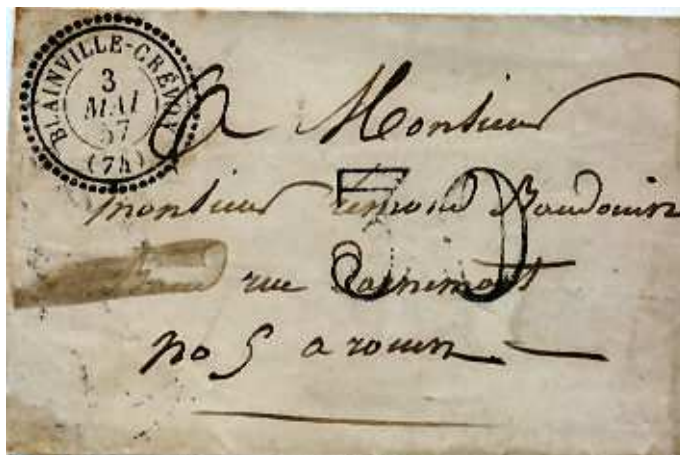 BLAINVILLE-CRÉVON
3
MAI
57
(74)
A Monsieur
monsieur Baudouin
rue
no 5 a rouen